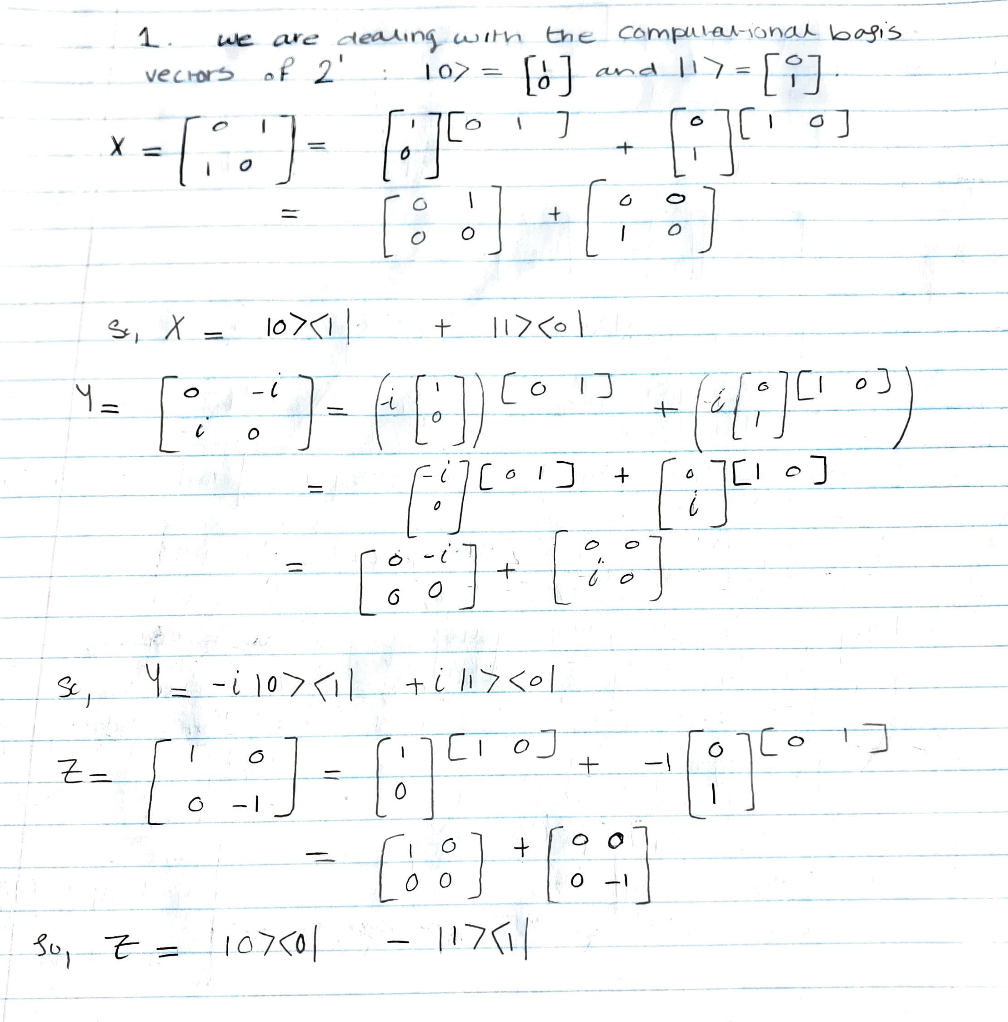 1. we are dealing with the computational basis
vectors of 2¹ : |0> = [1 0] and |1> = [0 1].
X = [0 1 1 0] = [1 0][0 1] + [0 1][1 0]
= [0 1 0 0] + [0 0 1 0]
So, X = |0><1| + |1><0|
Y = [0 -i i 0] = (-i [1 0]) [0 1] + (i [0 1][1 0])
= [-i 0][0 1] + [0 i][1 0]
= [0 -i 0 0] + [0 0 i 0]
So, Y = -i |0><1| + i |1><0|
Z = [1 0 0 -1] = [1 0][1 0] + -1 [0 1][0 1]
= [1 0 0 0] + [0 0 0 -1]
So, Z = |0><0| - |1><1|